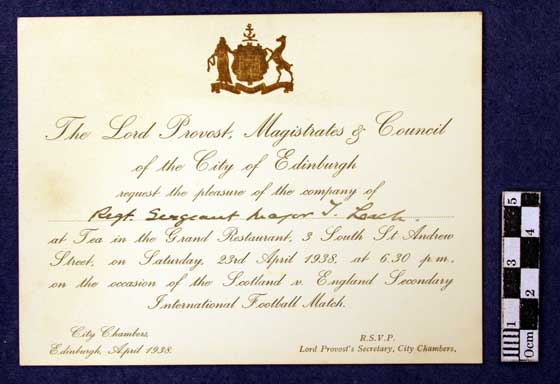 The Lord Provost, Magistrates & Council
of the City of Edinburgh
request the pleasure of the company of
Regt. Sergeant Major T.
at Tea in the Grand Restaurant, 3 South St Andrew
Street, on Saturday, 23rd April 1938, at 6.30 p.m.,
on the occasion of the Scotland v. England Secondary
International Football Match.
City Chambers,
Edinburgh, April 1938.
R.S.V.P.
Lord Provost's Secretary, City Chambers,
5
4
3
2
1
0cm